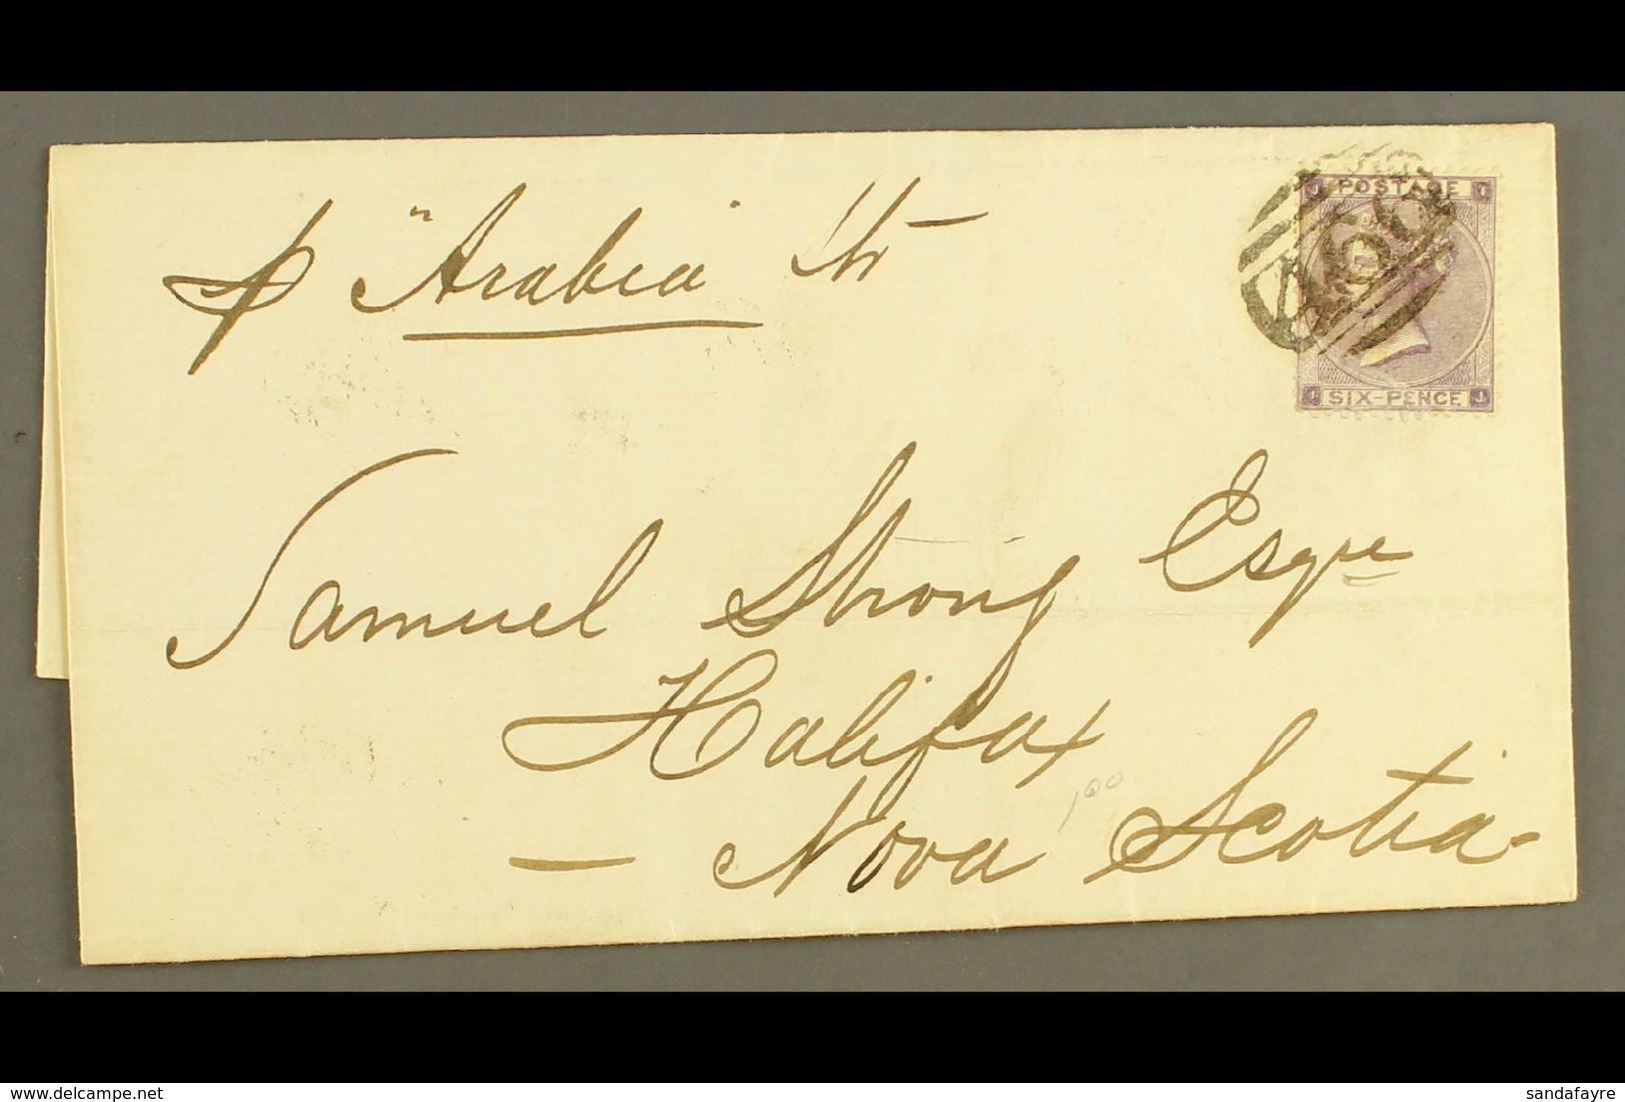 p "Arabia" Str
POSTAGE
SIX-PENCE
Samuel Strong Esqre
Halifax
— Nova Scotia
100
www.delcampe.net
sandafayre